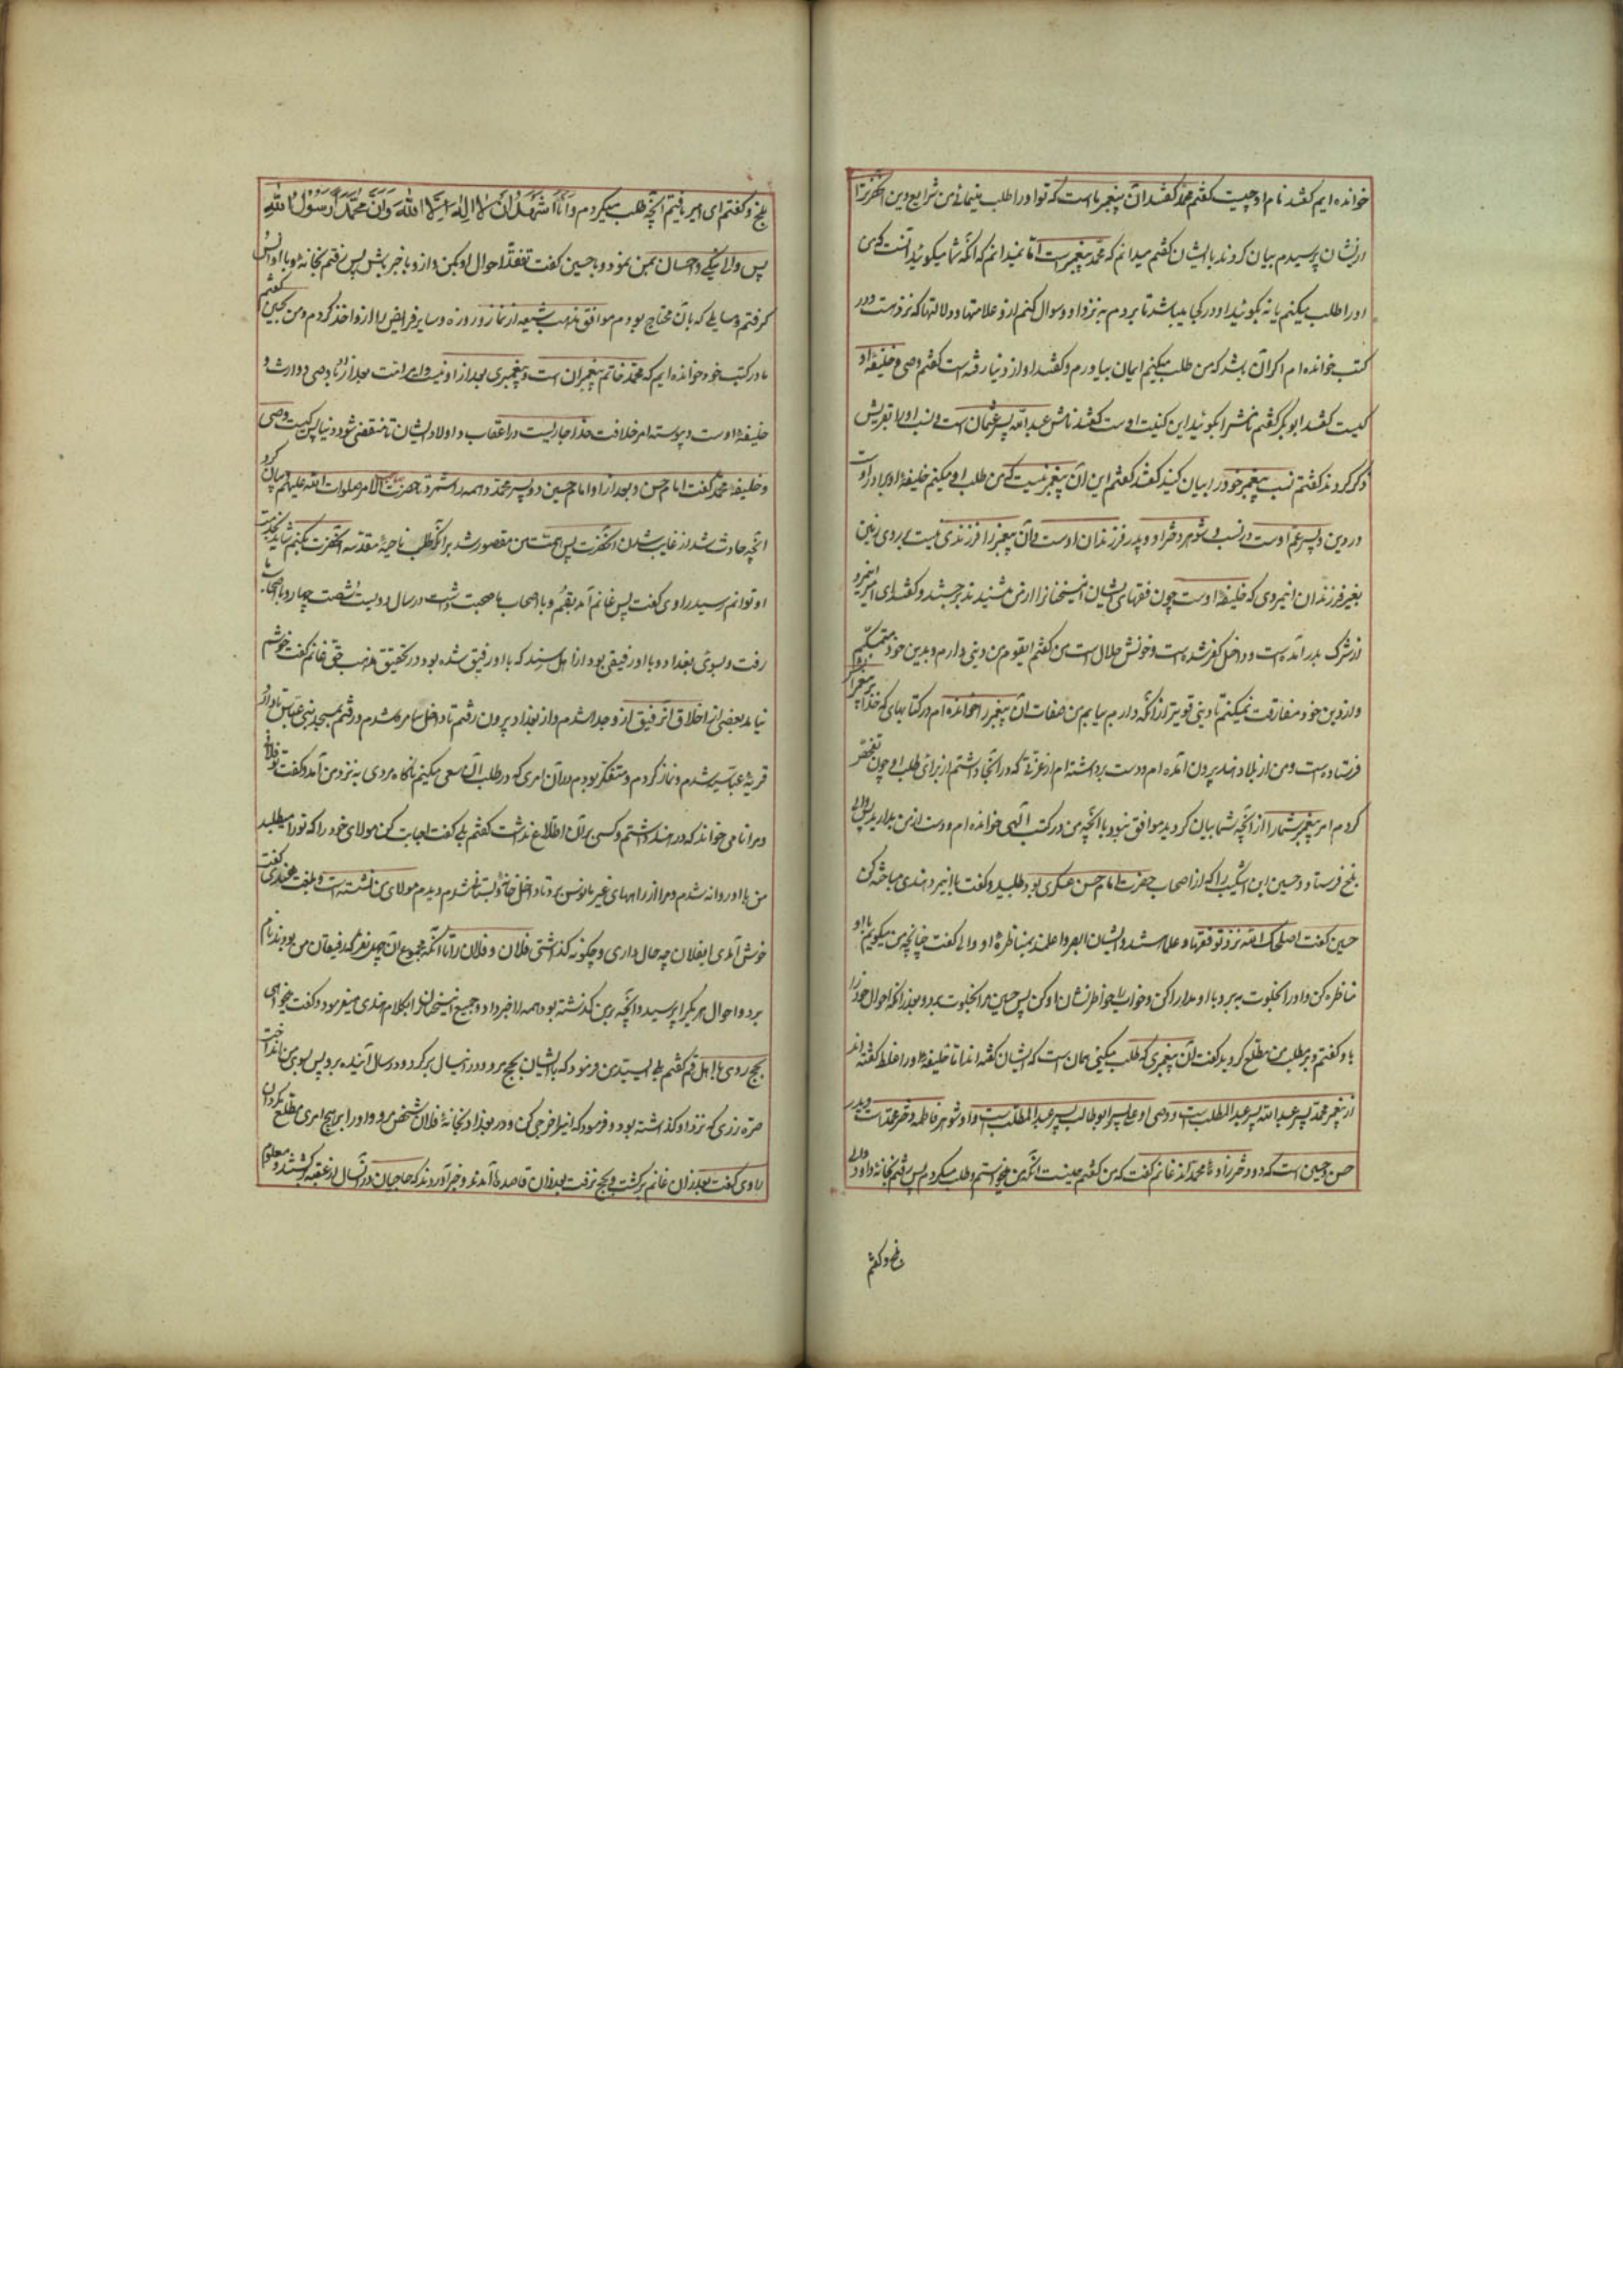 خوانده ایم کفتند نام او چیست کفتم محمد کفتند آن پیغمبر ماست که تو او را طلب مینمائی من شرایع دین آنحضرترا
از ایشان پرسیدم بیان کردند با ایشان کفتم میدانم که محمد پیغمبرست اما نمیدانم که آنکه شما میکوئید آنست که من
او را طلب میکنم یا نه بکوئید او در کجا میباشد تا بروم به نزد او و سوال کنم از و علامتها و دلالتها که نزد منست و در
کتب خوانده ام اکر آن باشد که من طلب میکنم ایمان بیاورم کفتند او از دنیا رفته است کفتم وصی و خلیفهٔ او
کیست کفتند ابو بکر کفتم نامش را بکوئید این کنیت اوست کفتند نامش عبد الله پسر عثمان است و نسب او را تا بقریش
ذکر کردند کفتم نسب پیغمبر خود را بیان کنید کفتند کفتم این آن پیغمبر نیست که من طلب او میکنم خلیفهٔ او برادر اوست
در دین و پسر عم اوست در نسب و شوهر دختر او و پدر فرزندان اوست و آن پیغمبر را فرزندی نیست بر روی زمین
بغیر فرزندان این مردی که خلیفهٔ اوست چون فقهای ایشان این سخنانرا از من شنیدند برجستند و کفتند ای امیر این مرد
از شرک بدر آمده است و داخل کفر شده است و خونش حلال است من کفتم ایقوم من دینی دارم و بدین خود متمسکم
و از دین خود مفارقت نمیکنم تا دینی قویتر از آنکه دارم بیابم من صفات آن پیغمبر را خوانده ام در کتابهای که خدا بر پیغمبران
فرستاده است و من از بلاد هند بیرون آمده ام و دست برداشته ام از عزتی که در آنجا داشتم از برای طلب او چون تفحص
کردم امر پیغمبر شما را از آنچه شما بیان کردید موافق نبود با آنچه من در کتب الهی خوانده ام دست از من بدارید پس والی
بلخ فرستاد و حسین ابن اشکیب را که از اصحاب حضرت امام حسن عسکری بود طلبید و کفت با این مرد هندی مباحثه کن
حسین کفت اصلحک الله نزد تو فقها و علما هستند و ایشان ابصر و اعلمند بمناظرهٔ او والی کفت چنانچه من میکویم با او
مناظره کن و او را بخلوت به بر و با او مدارا کن و خوب خاطر نشان او کن پس حسین مرا بخلوت برد و بعد از آنکه احوال خود را
باو کفتم و بر مطلب من مطلع کردید کفت آن پیغمبری که طلب میکنی همان است که ایشان کفته اند اما خلیفهٔ او را غلط کفته اند
آن پیغمبر محمد پسر عبد الله پسر عبد المطلب است و وصی او علی پسر ابو طالب پسر عبد المطلب است و او شوهر فاطمه دختر محمد است و پدر
حسن و حسین است که دو دختر زاده محمد اند غانم کفت که من کفتم همینست آنکه من میخواستم و طلب میکردم پس رفتم بخانه داود والی
بلخ و کفتم
بلخ و کفتم ای امیر یافتم آنچه طلب میکردم و اَنَا اَشْهَدُ اَنْ لا اِلٰهَ اِلَّا اللهَ وَاَنَّ مُحَمَّدَاً رَسُوْلُ اللهِ
پس والی نیکی و احسان بمن نمود و با حسین کفت تفقد احوال او بکن و از و با خبر باش پس رفتم بخانهٔ او و با او انس
کرفتم و مسایلی که بآن محتاج بودم موافق مذهب شیعه از نماز و روزه و سایر فرایض را از و اخذ کردم و من بحسین کفتم
ما در کتب خود خوانده ایم که محمد خاتم پیغمبران است و پیغمبری بعد از او نیست و امر امت بعد از او با وصی و وارث و
خلیفهٔ اوست و پیوسته امر خلافت خدا جاریست در اعقاب و اولاد ایشان تا منقضی شود دنیا پس کیست وصی
و خلیفهٔ محمد کفت امام حسن و بعد از او امام حسین دو پسر محمد و همه را شمرد تا حضرت صاحب الامر صلوات الله علیهم و بیان کرد
آنچه حادث شد از غایب شدن آنحضرت پس همت من مقصور شد بر آنکه طلب ناحیهٔ مقدسه آنحضرت بکنم شاید بخدمت
او توانم رسید راوی کفت پس غانم آمد بقم و با اصحاب ما صحبت داشت در سال دویست و شصت و چهار و با اصحاب ما
رفت بسوی بغداد و با او رفیقی بود از اهل سند که با او رفیق شده بود در تحقیق مذهب حق غانم کفت خوشم
نیامد بعضی از اخلاق آن رفیق از و جدا شدم و از بغداد بیرون رفتم تا داخل سامره شدم و رفتم بمسجد بنی عباس تا وارد
قریهٔ عباسیه شدم و نماز کردم و متفکر بودم در آن امری که در طلب آن سعی میکنم ناکاه مردی به نزد من آمد و کفت تو فلانی
و مرا نامی خواند که در هند داشتم و کسی بر آن اطلاع نداشت کفتم بلی کفت اجابت کن مولای خود را که تو را میطلبد
من با او روانه شدم و مرا از راههای غیر مانوس برد تا داخل خانه و بستانی شدم دیدم مولای من نشسته است و بلغت هندی کفت
خوش آمدی ایفلان چه حال داری و چکونه کذاشتی فلان و فلان را تا آنکه مجموع آن چهل نفر که رفیقان من بودند نام
برد و احوال هر یک را پرسید و آنچه بر من کذشته بود همه را خبر داد و جمیع این سخنان را بکلام هندی میفرمود و کفت میخواهی
بحج روی با اهل قم کفتم بلی ای سید من فرمود که با ایشان بحج مرو و در این سال برکرد و در سال آینده برو پس بسوی من انداخت
صره زری که نزد او کذاشته بود و فرمود که اینرا خرجی کن و در بغداد بخانهٔ فلان شخص مرو و او را بر هیچ امری مطلع مکردان
راوی کفت بعد از آن غانم برکشت و بحج نرفت بعد از آن قاصدها آمدند و خبر آوردند که حاجیان در آنسال از عقبه برکشتند و معلوم